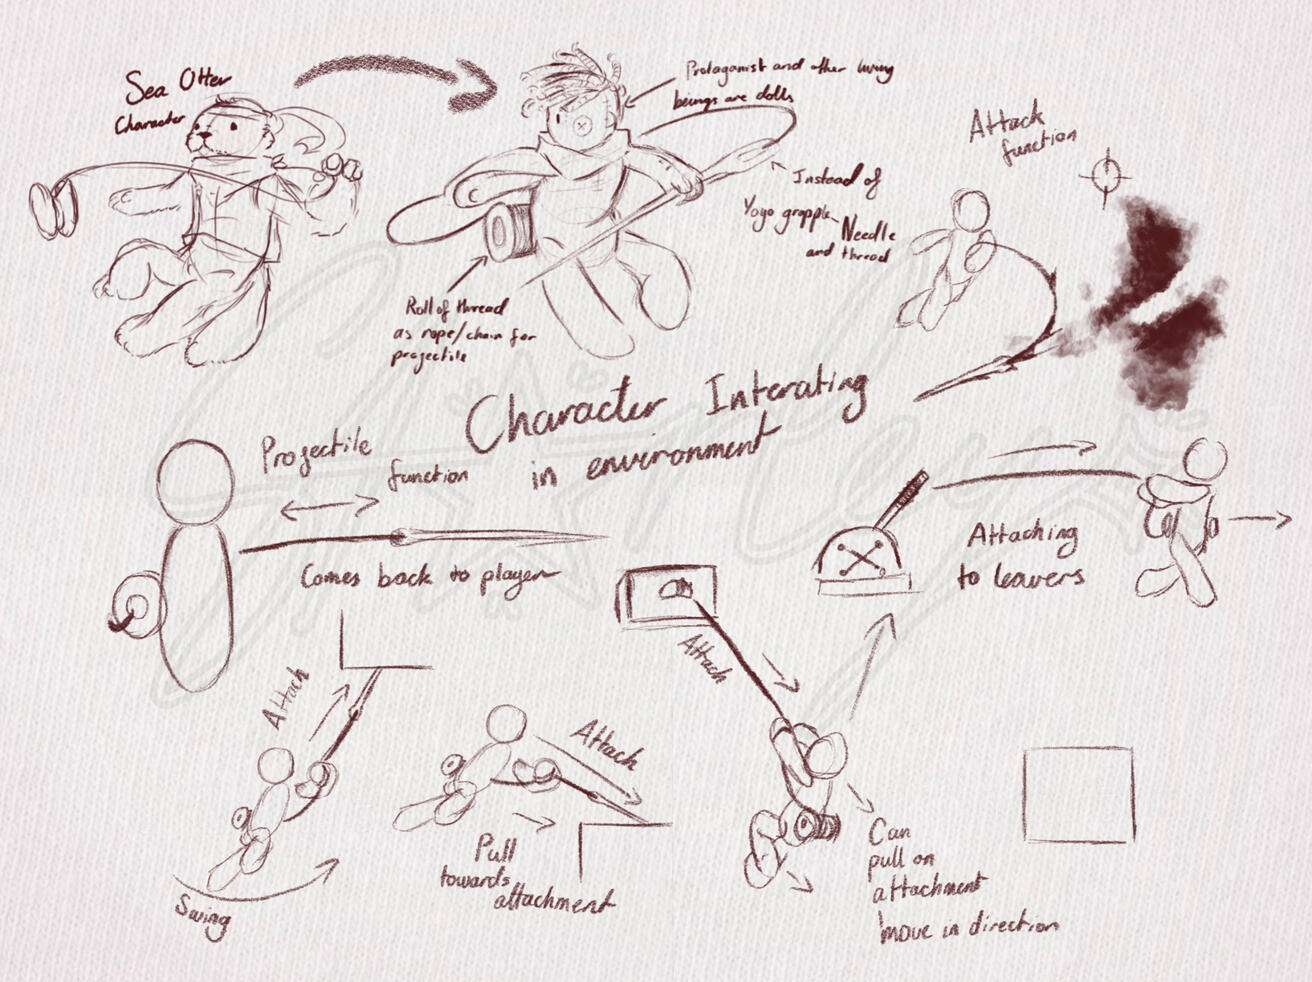 Sea Otter
Character
Protaganist and other living
beings are dolls
Attack
function
Instead of
Yoyo grapple - Needle
and thread
Roll of thread
as rope/chain for
projectile
Character Interating
in environment
Projectile
function
Comes back to player
Attaching
to leavers
Attach
Attach
Attach
Swing
Pull
towards
attachment
Can
pull on
attachment
move in direction